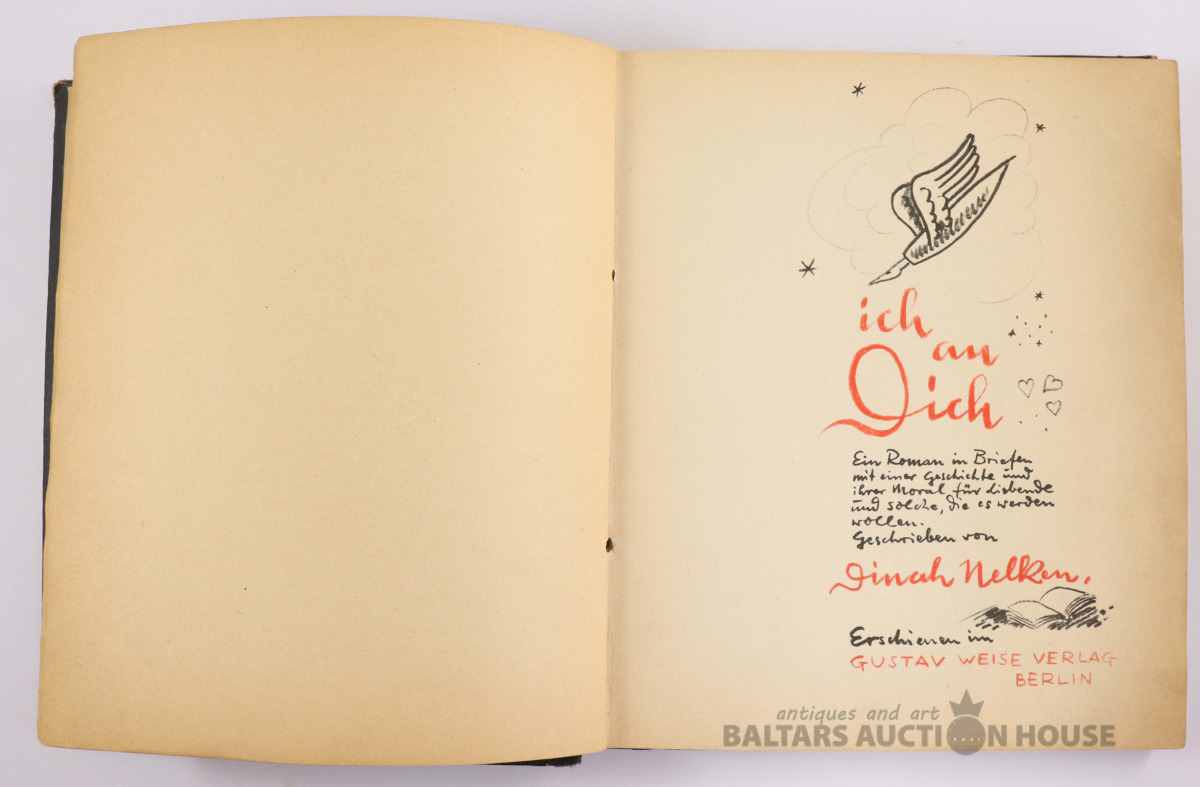 ich
an
Dich
Ein Roman in Briefen
mit einer Geschichte und
ihrer Moral für Liebende
und solche, die es werden
wollen.
Geschrieben von
Dinah Nelken.
Erschienen im
GUSTAV WEISE VERLAG
BERLIN
antiques and art
BALTARS AUCTION HOUSE